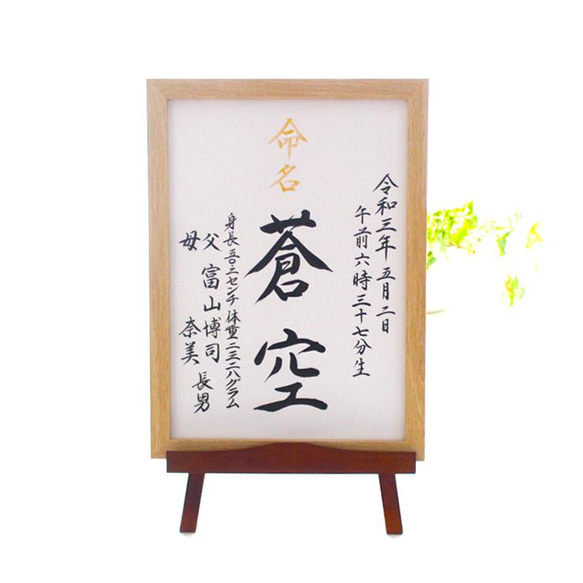 令和三年五月二日
午前六時三十七分生
命名
蒼空
身長五〇・二センチ 体重二三二八グラム
父 富山博司
母 奈美 長男